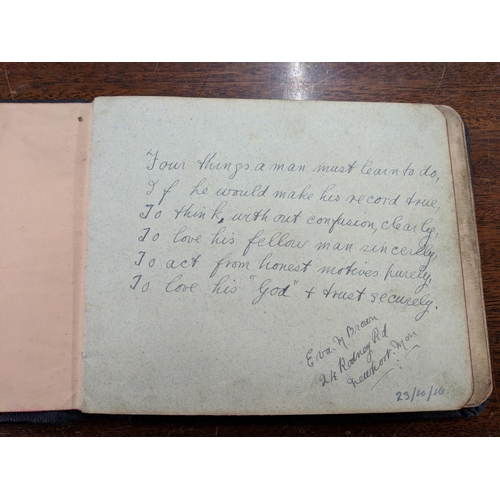 Four things a man must learn to do,
If he would make his record true,
To think, without confusion, clearly,
To love his fellow man sincerely,
To act from honest motives purely,
To love his "God" + trust securely.
Eva. M Brown
24 Rodney Rd
Newport. Mon
23/10/16